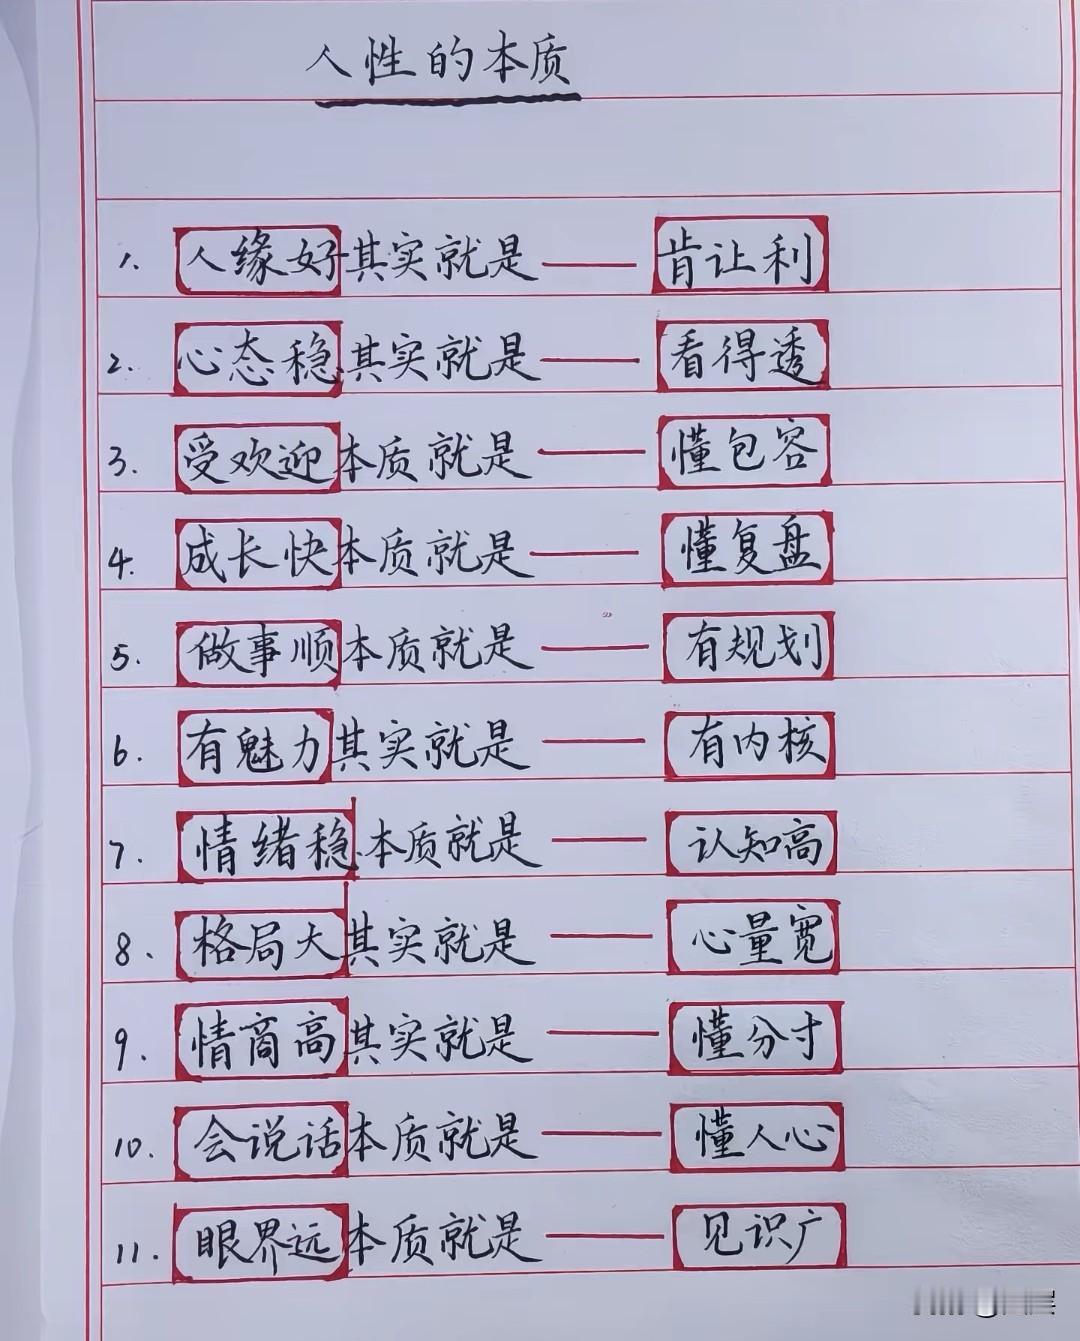 人性的本质
1. 人缘好其实就是——肯让利
2. 心态稳其实就是——看得透
3. 受欢迎本质就是——懂包容
4. 成长快本质就是——懂复盘
5. 做事顺本质就是——有规划
6. 有魅力其实就是——有内核
7. 情绪稳本质就是——认知高
8. 格局大其实就是——心量宽
9. 情商高其实就是——懂分寸
10. 会说话本质就是——懂人心
11. 眼界远本质就是——见识广